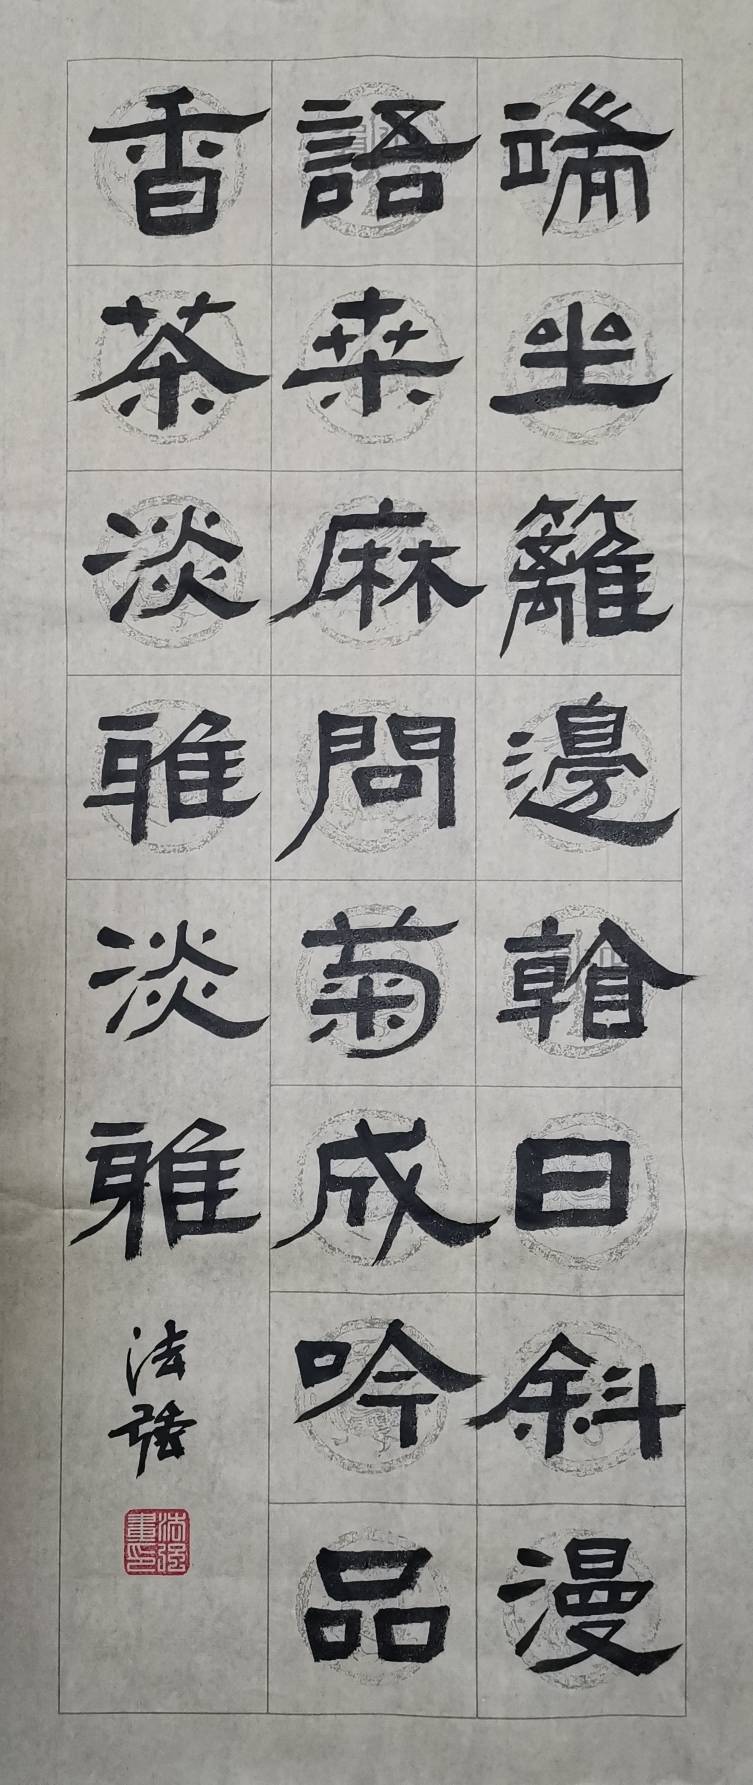 端坐籬邊朝日斜漫
語桒麻問菊成吟品
香茶淡雅淡雅
法强
法强畫印